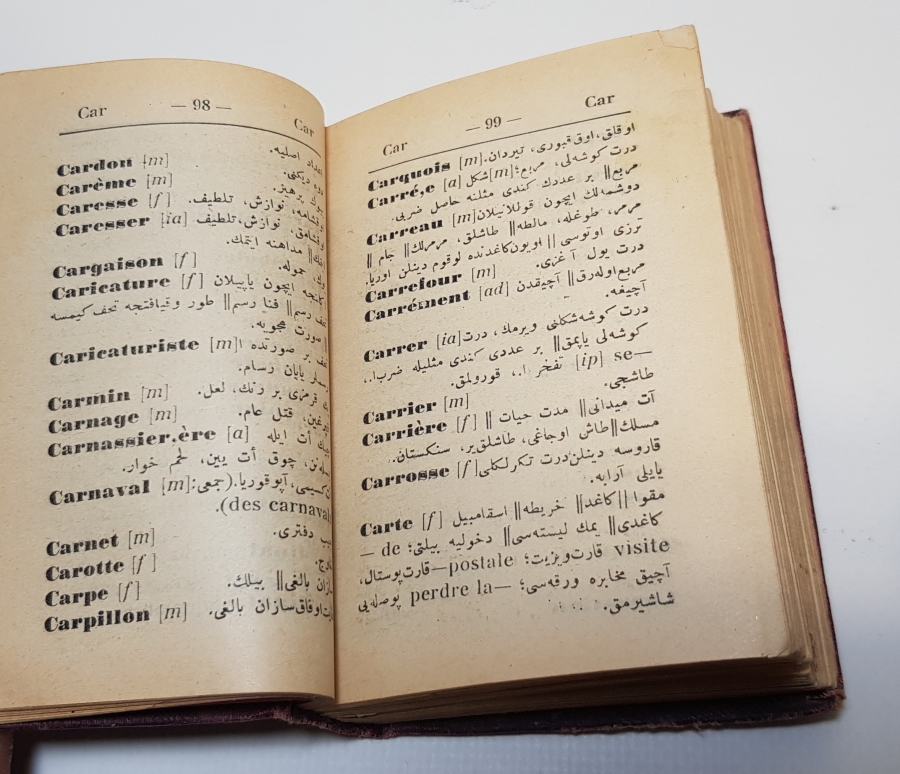 Car
— 98 —
Car
Cardon [m] اعداد اصلیه.
Carème [m] دوه دیکنی.
Caresse [f] بویوك پرهیز.
Caresser [ia] اوقشامه، نوازش، تلطیف.
اوقشامق، نوازش، تلطیف
ایتمك|| مداهنه ایتمك.
Cargaison [f] حموله.
Caricature [f] ایچون یاپیلان
رسم|| فنا رسم|| طور وقیافتجه تحف کیمسه
صورت هجویه.
Caricaturiste [m] بر صورتده
یاپان رسام.
Carmin [m] قرمزی بر رنك، لعل.
Carnage [m] قتل عام.
Carnassier.ère [a] أت ایله
چوق أت یین، لحم خوار.
Carnaval [m] آپوقوریا.(جمعی:
(des carnaval
Carnet [m] جیب دفتری.
Carotte [f]
Carpe [f] سازان بالغی|| بیلك.
Carpillon [m] اوفاق سازان بالغی.
Car
— 99 —
Car
Carquois [m] اوقلق، اوق قبوری، تیردان.
Carré,e [a] درت کوشه‌لی، مربع؛ [m] شکل
مربع|| بر عددك کندی مثلنه حاصل ضربی.
Carreau [m] دوشمه‌لك ایچون قوللانیلان
مرمر، طوغله، مالطه|| طاشلق، مرمرلك|| جام ||
ترزی اوتوسی || اویون کاغدنده لوقوم دینلن اوریا.
Carrefour [m] درت یول آغزی.
Carrément [ad] مربع اوله‌رق|| آچیقدن
آچیغه.
Carrer [ia] درت کوشه شکلنی ویرمك، درت
کوشه‌لی یایمق|| بر عددی کندی مثلیله ضرب ا.،
se— [ip] تفخر ا.، قورولمق.
Carrier [m] طاشجی.
Carrière [f] آت میدانی|| مدت حیات ||
مسلك|| طاش اوجاغی، طاشلق یر، سنکستان.
Carrosse [f] قاروسه دینلن درت تکرلکلی
یایلی آرابه.
Carte [f] مقوا || کاغد|| خریطه|| اسقامبیل
کاغدی|| یمك لیسته‌سی|| دخولیه بیلتی؛ de —
visite قارت ویزیت؛ postale— قارت پوستال،
آچیق مخابره ورقه‌سی؛ perdre la— پوصله‌یی
شاشیرمق.